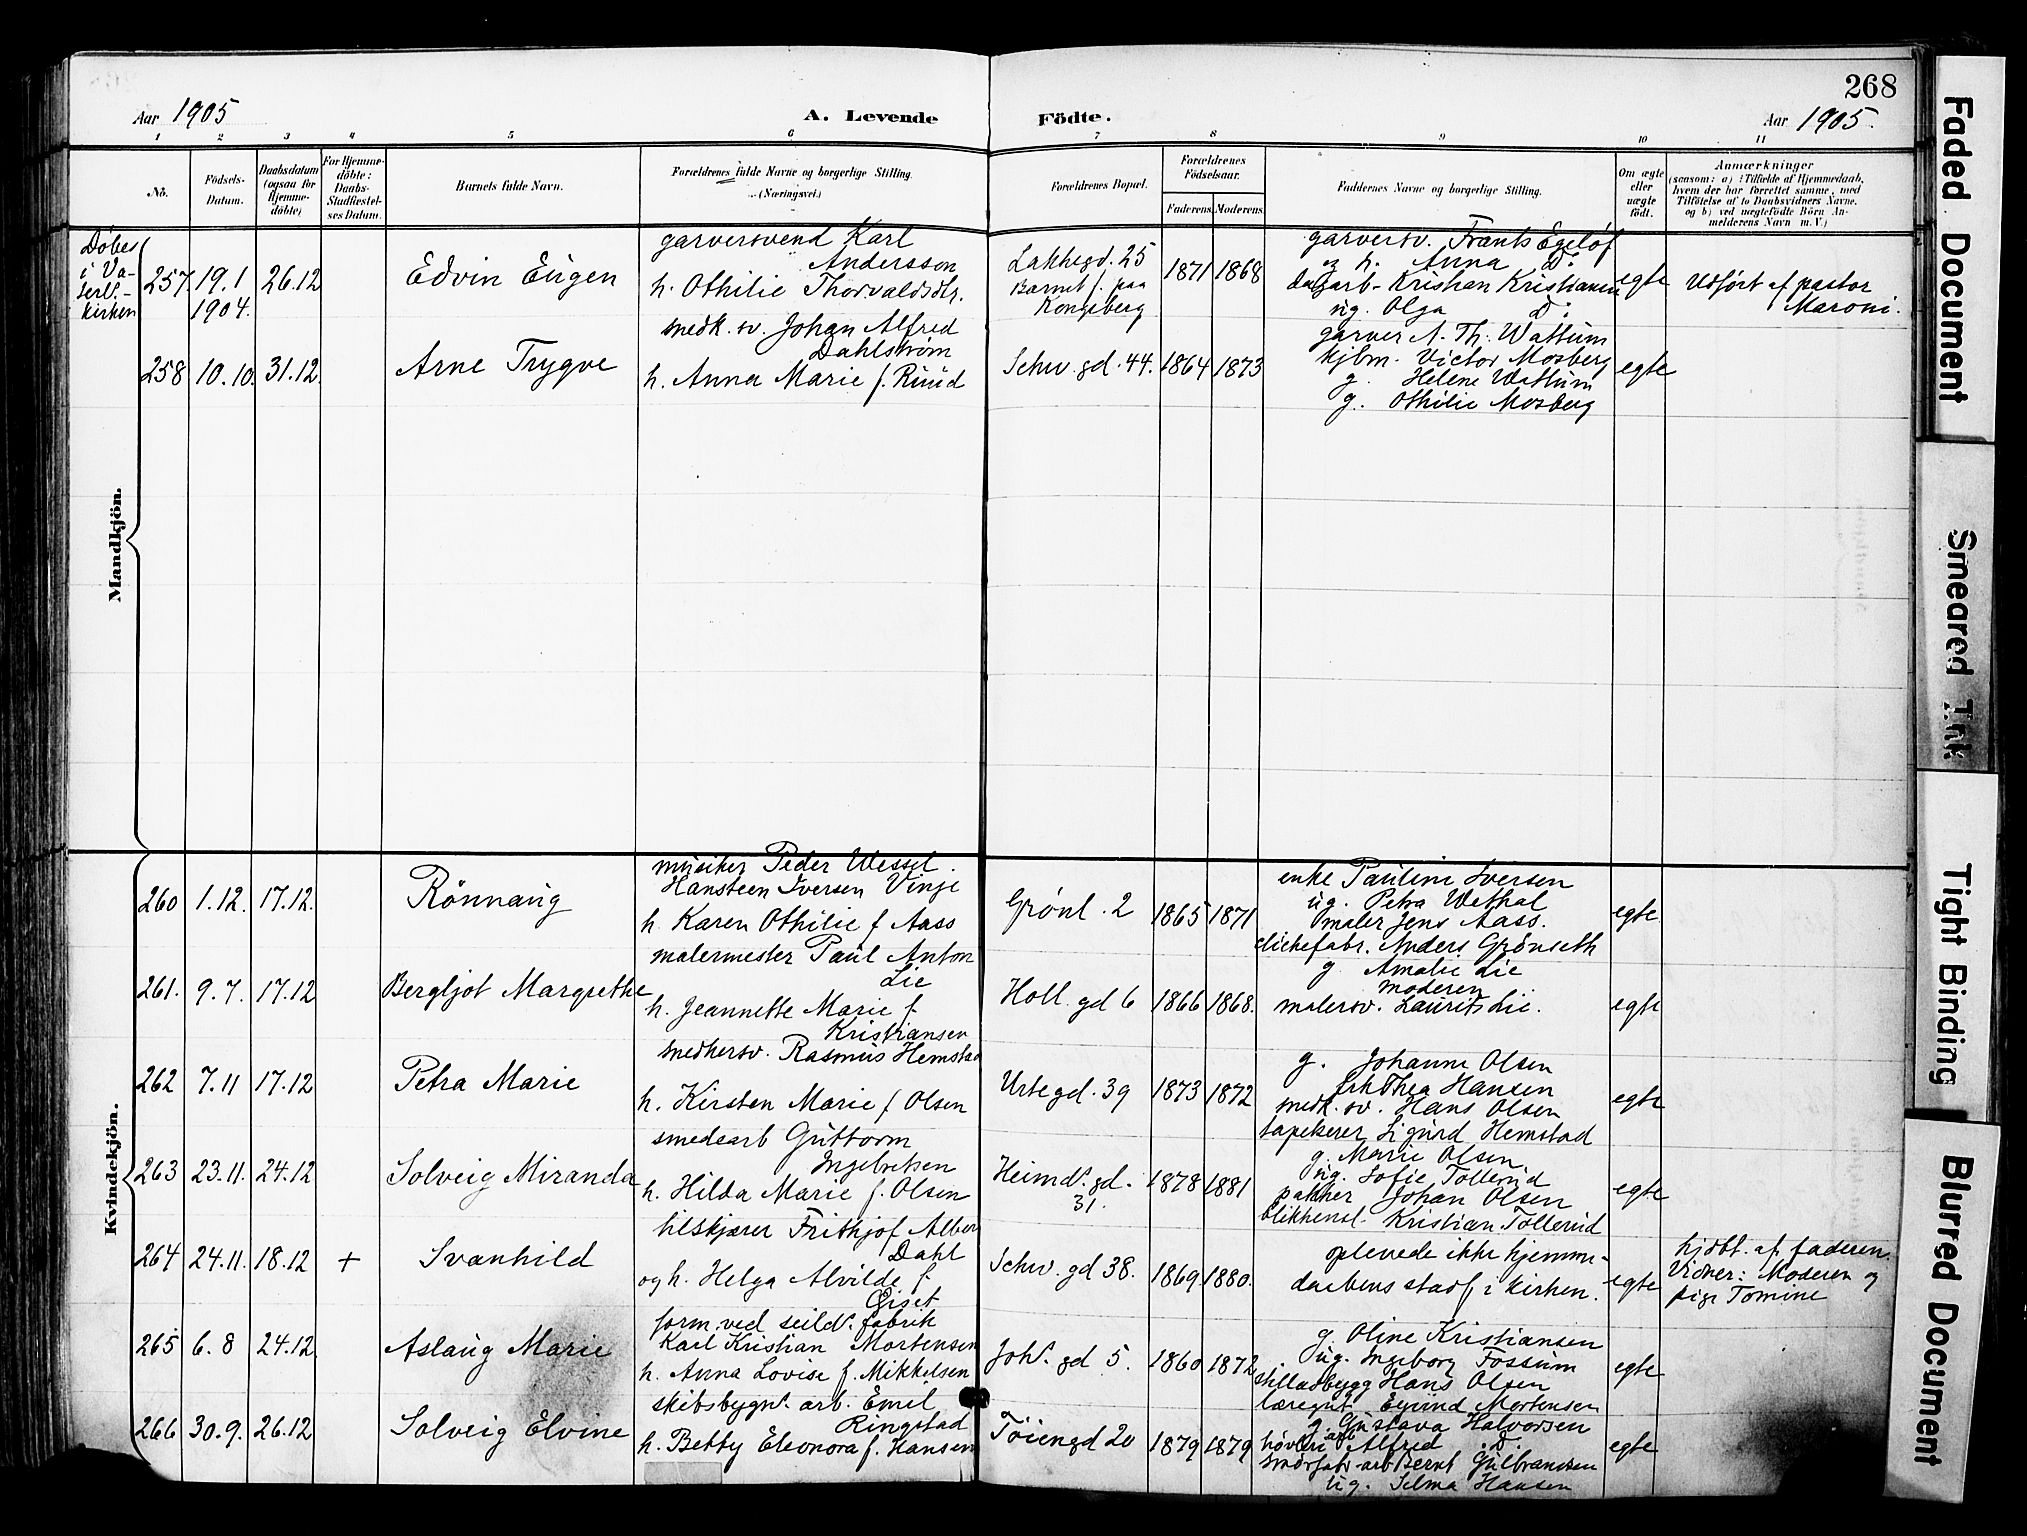 268
Aar 1905
A. Levende
Födte.
Aar 1905.
1 2 3 4 5 6 7 8 9 10 11
No.
Födsels-
Datum.
Daabsdatum
(ogsaa for
Hjemme-
döbte)
For Hjemme-
döbte:
Daabs-
Stadfæstel-
ses Datum.
Barnets fulde Navn.
Forældrenes fulde Navne og borgerlige Stilling.
(Næringsvei.)
Forældrenes Bopæl.
Forældrenes
Födselsaar.
Faderens
Moderens
Faddernes Navne og borgerlige Stilling.
Om ægte
eller
uægte
födt.
Anmærkninger
(saasom: a) i Tilfælde af Hjemmedaab,
hvem der har forrettet samme, med
Tilföielse af to Daabsvidners Navne.
og b) ved uægtefödte Börn An-
melderens Navn m. V.)
Mandkjön.
Döbes
i Va-
kirken
257
19.1
1904.
26.12
Edvin Eugen
garversvend Karl
Andersson
h. Othilie Thorvaldsdtr.
Lakkegd. 25
Barnet f. paa
Kongsberg
1871
1868
garversv. Frants Egelöf
og h. Anna Do
dagarb. Kristian Kristiansen
ug. Olga Do
egte
Udført af pastor
Maroni.
258
10.10.
31.12
Arne Trygve
snedk. sv. Johan Alfred
Dahlström
h. Anna Marie f. Ruud
Schw. gd. 44.
1864
1873
garver A. Th. Wattum
kjbm. Victor Mosberg
g. Helene Wattum
g. Othilie Mosberg
egte
Kvindekjön.
260
1.12.
17.12.
Rönnaug
musiker Peder Wessel
Hansteen Iversen Vinje
h. Karen Othilie f Aass
Grønl. 2
1865
1871
enke Pauline Iversen
ug. Petra Wethal
maler Jens Aass.
clichefabr. Anders Grønseth
egte
261.
9.7.
17.12
Bergljot Margrethe
malermester Paul Anton
Lie
h. Jeannette Marie f.
Kristiansen
Holl. gd 6
1866
1868.
g. Amalie Lie
moderen
malersv. Laurits Lie.
egte
262
7.11
17.12
Petra Marie
snedkersv. Rasmus Hemstad
h. Kirsten Marie f Olsen
Urtegd. 39
1873
1872
g. Johanne Olsen
frk Thea Hansen
snedk. sv. Hans Olsen
tapetserer Sigurd Hemstad
egte
263
23.11.
24.12
Solveig Miranda
smedearb Guttorm
Ingebretsen
h. Hilda Marie f. Olsen
Heimds. gd.
31.
1878
1881
g. Marie Olsen
ug. Sofie Tollerud
pakker Johan Olsen
blikkensl. Kristian Tollerud
egte
264
24.11.
18.12
+
Svanhild
tilskjærer Frithjof Albert
Dahl
og h. Helga Alvilde f.
Schw. gd 38.
1869
1880.
oplevede ikke hjemme-
daabens stadf i kirken.
egte
hjdbt. af faderen.
Vidner: Moderen og
pige Tomine
265
6.8
24.12
Aslaug Marie
form. ved seild. fabrik
Karl Kristian Mortensen
h. Anna Lovise f. Mikkelsen
Johs. gd 5.
1860
1872
g. Oline Kristiansen
ug. Ingeborg Fossum
stilladbygg Hans Olsen
læregut Eyvind Mortensen
egte
266
30.9.
26.12
Solveig Elvine
skibsbygn. arb. Emil
Ringstad
h. Betty Eleonora f. Hansen
Töiengd 20
1879
1879
g. Gustava Halvorsen
høvleri arb Alfred Do
smörfabr. arb Bernt Gulbrandsen
ug. Selma Hansen
egte
Faded Document
Smeared Ink
Tight Binding
Blurred Document